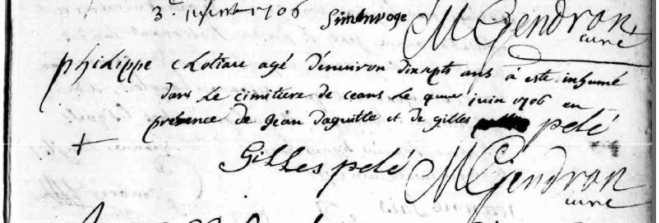 3e juin 1706 Simhvoge MGendron
curé
philippe clotiau agé d'environ dixsept ans à esté inhumé
dans le cimitiere de ceans le quat juin 1706 en
présence de jean daguitte et de gilles pelé
Gilles pelé MGendron
curé